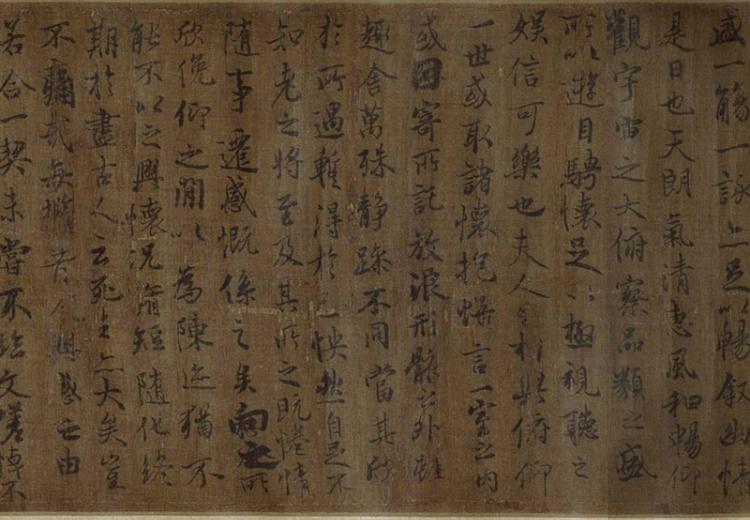 盛一觴一詠亦足以暢敘幽情
是日也天朗氣清惠風和暢仰
觀宇宙之大俯察品類之盛
所以遊目騁懷足以極視聽之
娛信可樂也夫人之相與俯仰
一世或取諸懷抱悟言一室之內
或因寄所託放浪形骸之外雖
趣舍萬殊靜躁不同當其欣
於所遇暫得於己怏然自足不
知老之將至及其所之既惓情
隨事遷感慨係之矣向之所
欣俛仰之閒以為陳迹猶不
能不以之興懷況脩短隨化終
期於盡古人云死生亦大矣豈
不痛哉每攬昔人興感之由
若合一契未嘗不臨文嗟悼不